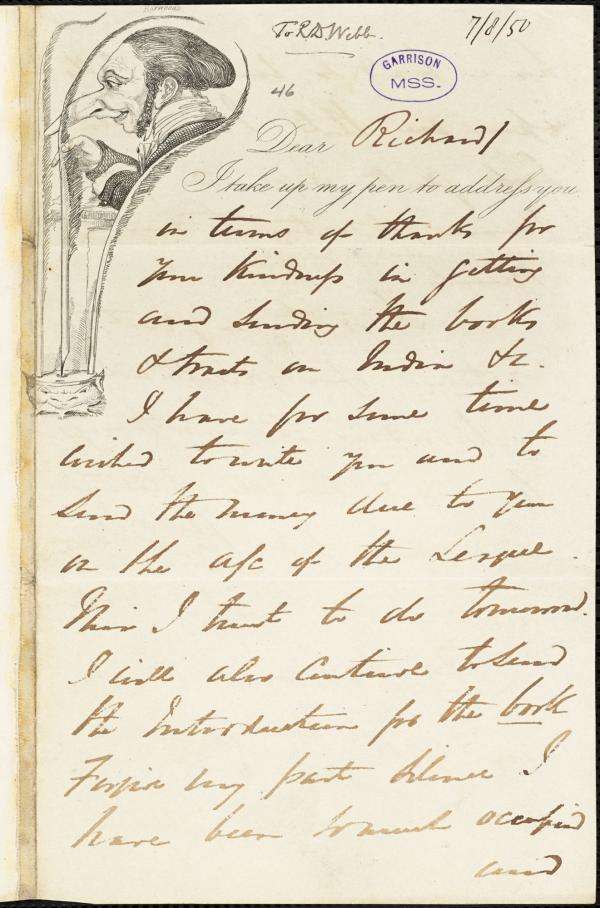 To R D Webb.
7/8/50
GARRISON
MSS.
46
Dear Richard/
I take up my pen to address you
in terms of thanks for
your kindness in getting
and sending the books
& tracts on India &c.
I have for some time
wished to write you and to
send the money due to you
on the a/c of the League.
This I trust to do tomorrow.
I will also continue to send
the Introduction for the book
Forgive my past silence I
have been so much occupied
and